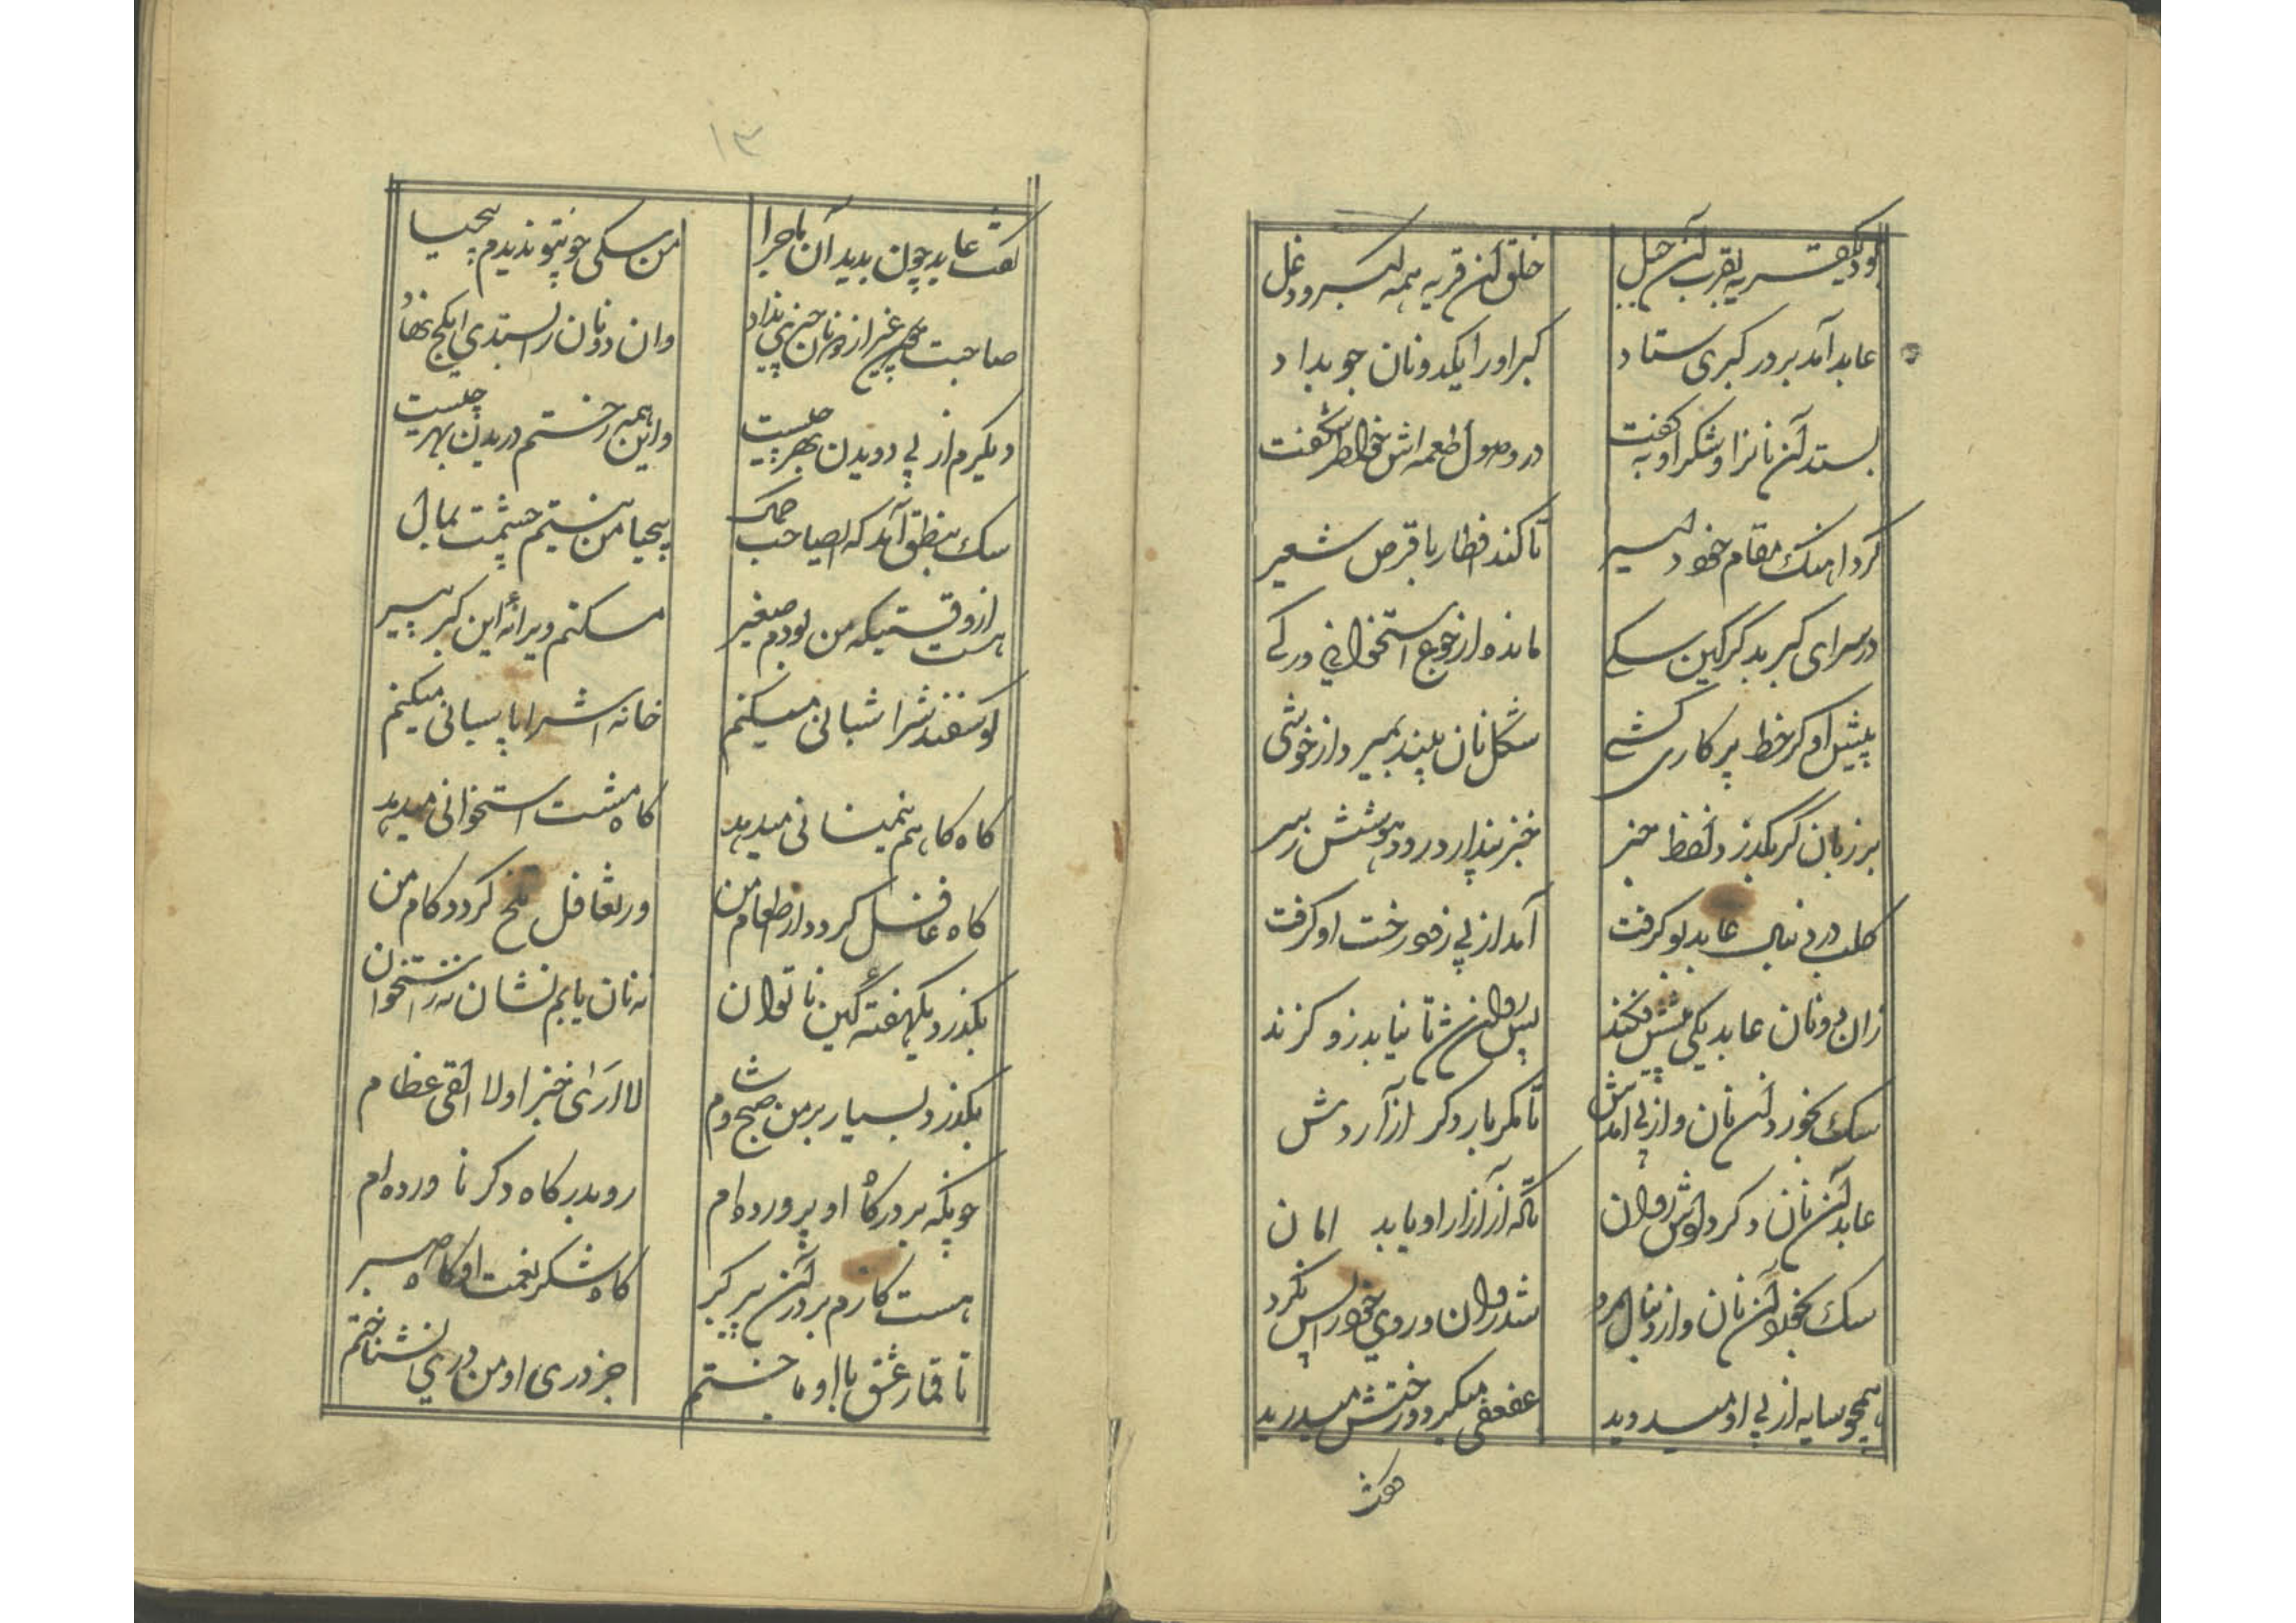 بود یک قریه بقرب آن جبل خلق آن قریه همه گبر و دغل
عابد آمد بر در گبری ستاد گبر او را یکدو نان جو بداد
بستد آن نانرا و شکر او بگفت در وصول طعمه اش خاطر شگفت
کرد اهنک مقام خود دلیر تا کند افطار با قرص شعیر
در سرای گبر بد گرگین سگی مانده از جوع استخوانی و رگی
پیش او گر خط پرکاری کشی شکل نان بیند بمیرد از خوشی
بر زبان گر بگذرد لفظ خبر خبز پندارد رود هوشش ز سر
کلب در دنبال عابد بو گرفت آمد از پی زود رخت او گرفت
زان دو نان عابد یکی پیشش فکند پس روان شد تا نیابد زو گزند
سگ بخورد آن نان و از پی آمدش تا مگر بار دگر ازآردش
عابد آن نان دگر دادش روان تا که از آزار او یابد امان
سگ بخورد آن نان و از دنبال مرد شد روان و روی خود واپس نکرد
همچو سایه از پی او میدوید عفعفی میکرد و رختش میدرید
گفت
۱۳
گفت عابد چون بدید آن ماجرا من سگی چون تو ندیدم بیحیا
صاحبت غیر از دو نان چیزی نداد وان دو نان را بستدی ای کج نهاد
دیگرم از پی دویدن بهر چیست واین همه رختم دریدن بهر چیست
سگ بنطق آمد که ای صاحب کمال بیحیا من نیستم چشمت بمال
هست از وقتیکه من بودم صغیر مسکنم ویرانۀ این گبر پیر
گوسفندش را شبانی میکنم خانه اش را پاسبانی میکنم
گاه گاهم نیم نانی میدهد گاه مشت استخوانی میدهد
گاه غافل گردد از اطعام من وز تغافل تلخ گردد کام من
بگذرد یکهفته کین ناتوان نه نان یابم نشان نه ز استخوان
بگذرد بسیار بر من صبح و شام لا اری خبزا و لا القی عظام
چونکه بر درگاه او پرورده ام رو بدرگاه دگر ناورده ام
هست کارم بر در آن پیر گبر گاه شکر نعمت او گاه صبر
تا قمار عشق با او باختم جز در او من دری نشناختم